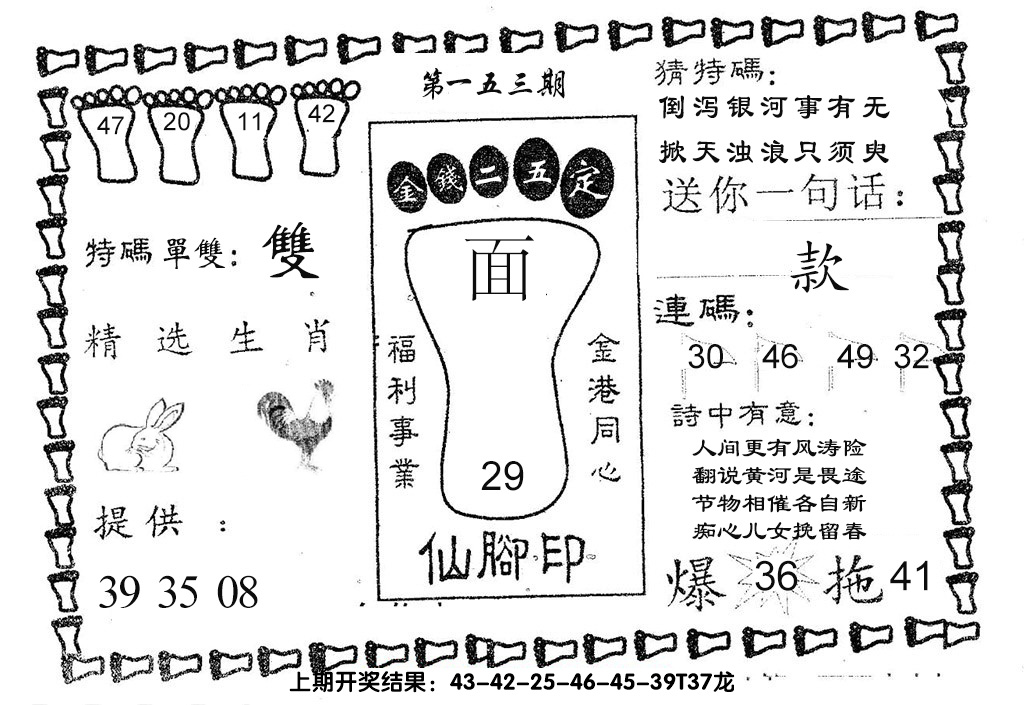 第一五三期
47 20 11 42
特碼單雙：雙
精选生肖
提供：
39 35 08
金錢二五定
面
福利事業
金港同心
29
仙腳印
猜特碼：
倒泻银河事有无
掀天浊浪只须臾
送你一句话：
款
連碼：
30 46 49 32
詩中有意：
人间更有风涛险
翻说黄河是畏途
节物相催各自新
痴心儿女挽留春
爆 36 拖 41
上期开奖结果：43-42-25-46-45-39T37龙